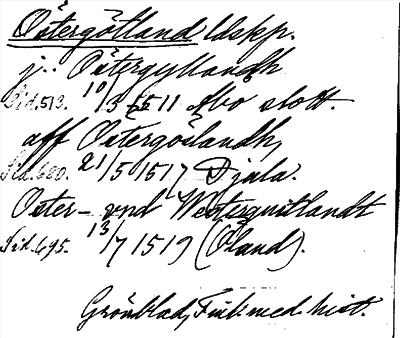 Östergötland ldskp.
j.. Östergyllandh
Sid. 513. 10/3 1511 Åbo slott.
aff Östergötlandh,
Sid. 680. 21/5 1517 Djula.
Oster- vnd Westerguttlandt
Sid. 695. 13/7 1519 (Öland).
Grönblad, Finl. med. hist.